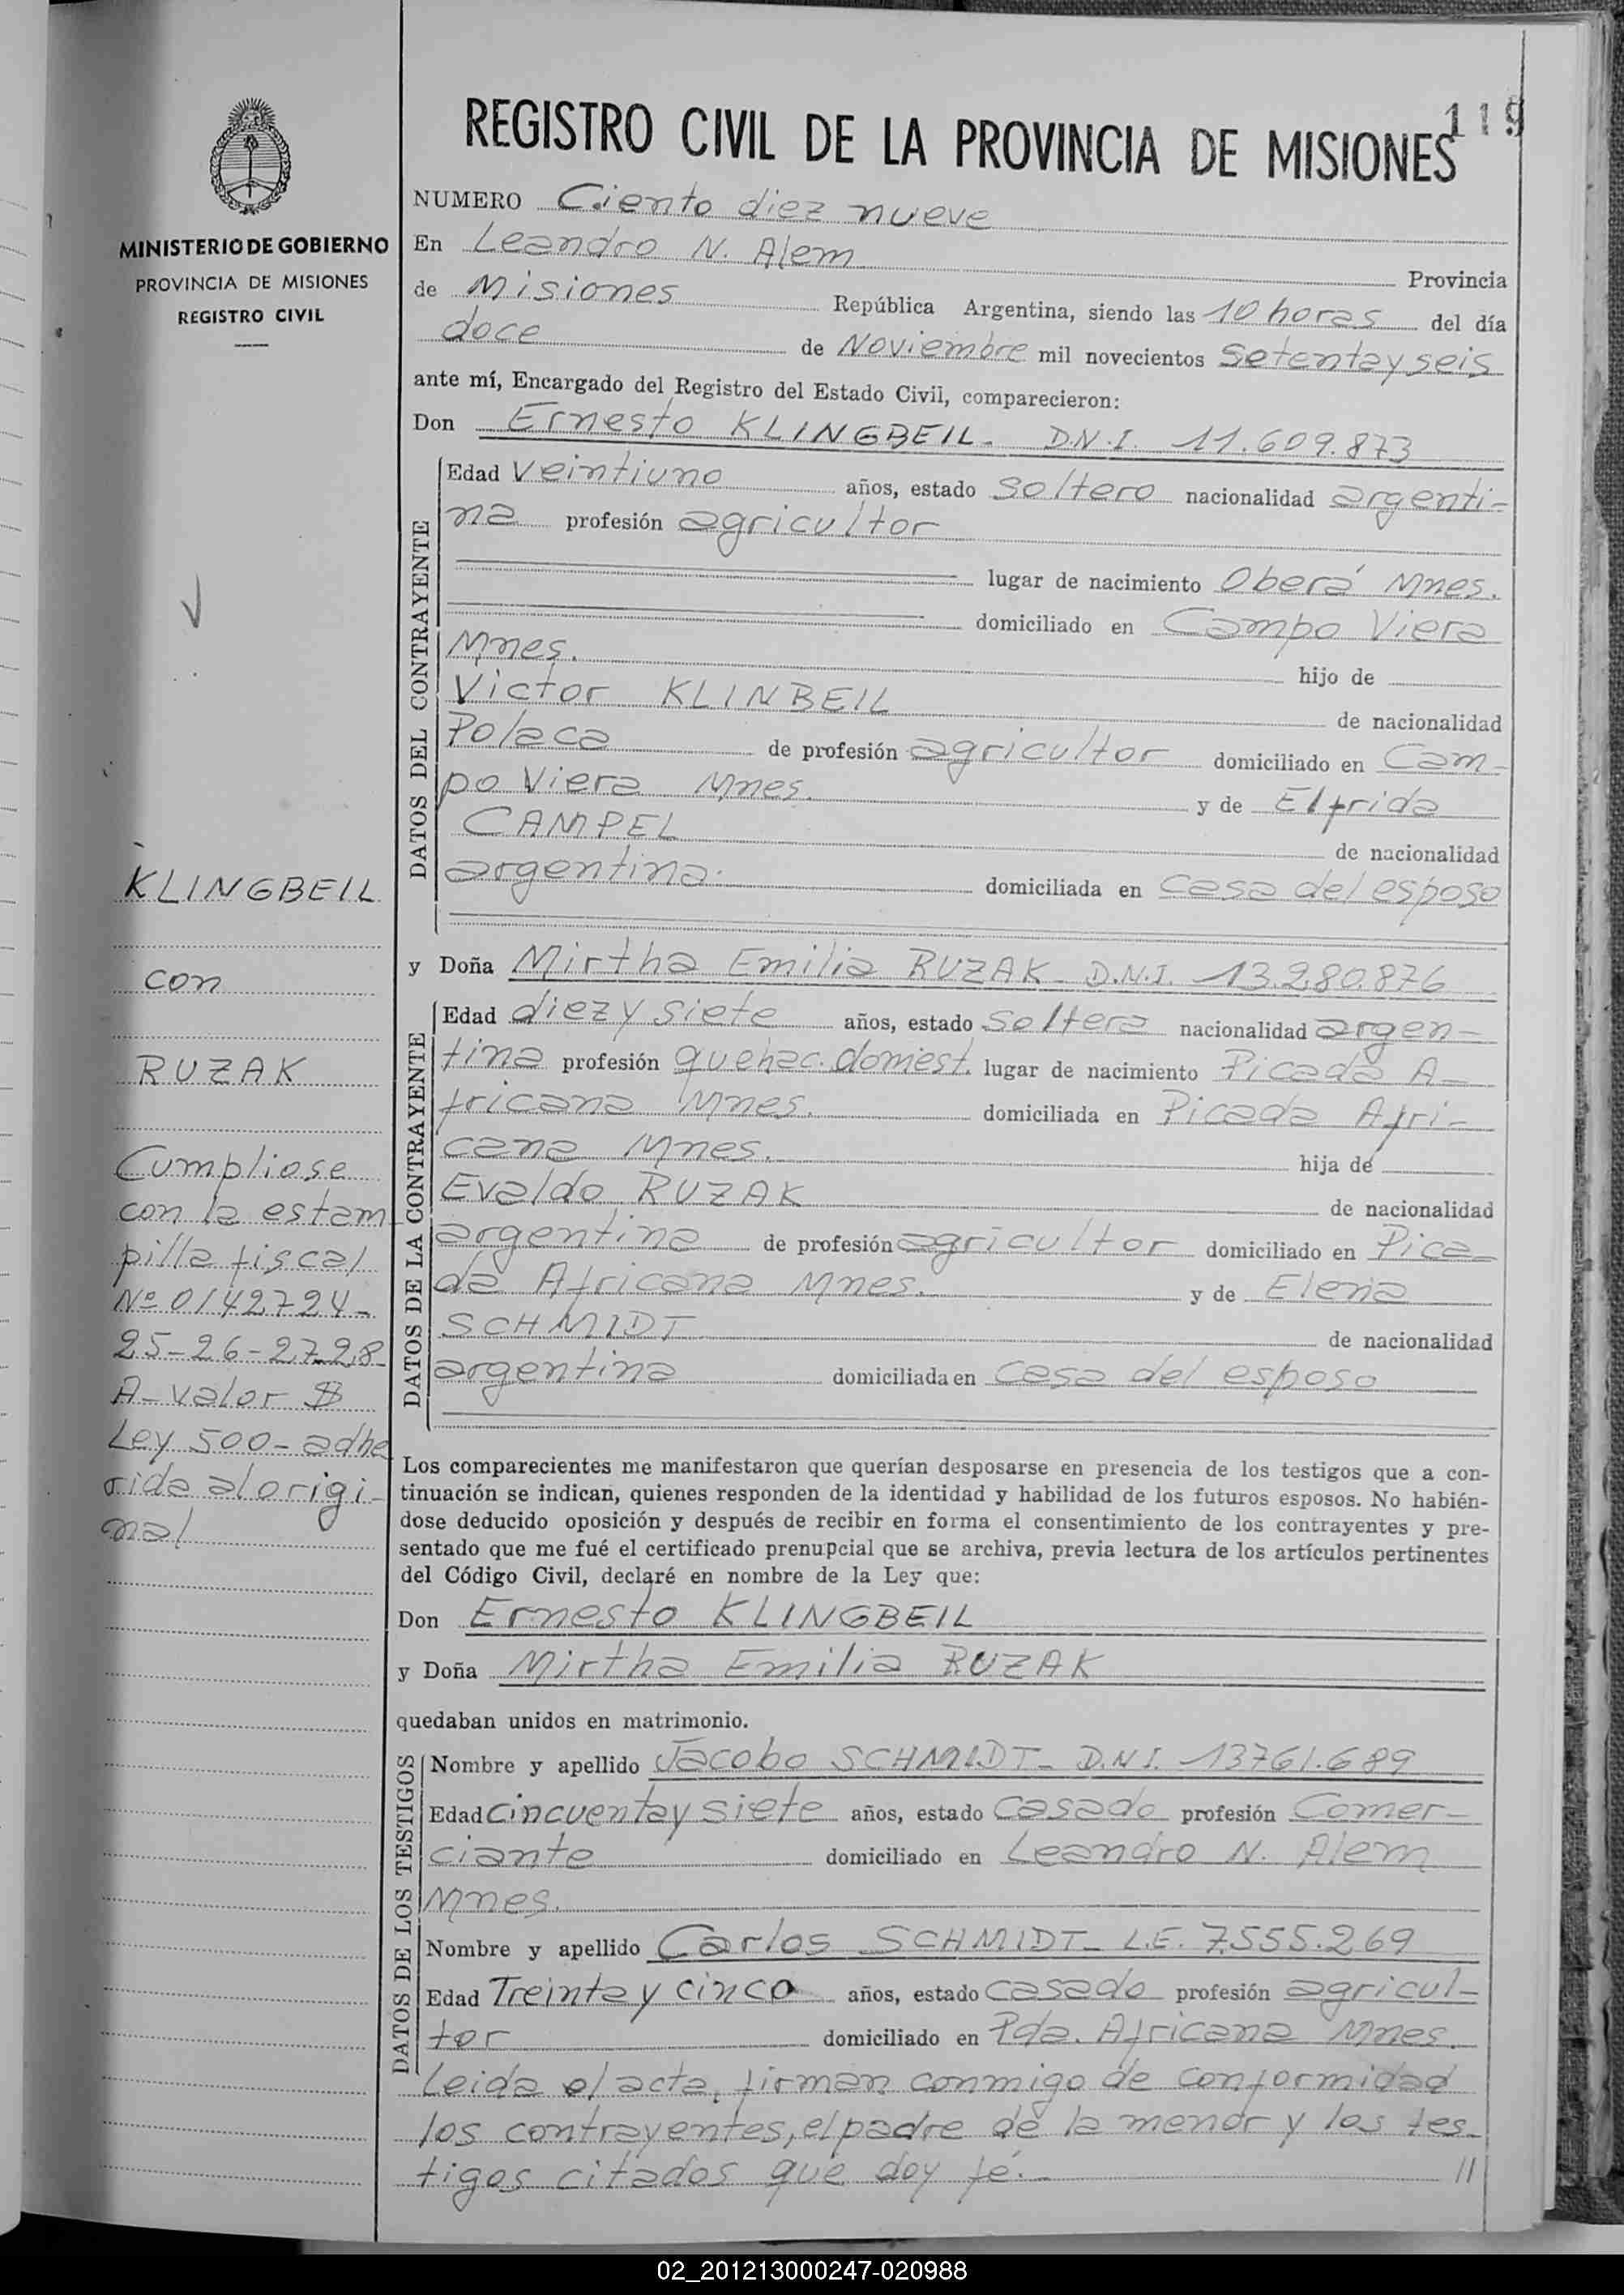 119
REGISTRO CIVIL DE LA PROVINCIA DE MISIONES
MINISTERIO DE GOBIERNO
PROVINCIA DE MISIONES
REGISTRO CIVIL
NUMERO Ciento diez nueve
En Leandro N. Alem Provincia
de Misiones República Argentina, siendo las 10 horas del día
doce de Noviembre mil novecientos setenta y seis
ante mí, Encargado del Registro del Estado Civil, comparecieron:
Don Ernesto KLINGBEIL- D.N.I. 11.609.873
DATOS DEL CONTRAYENTE
Edad veintiuno años, estado soltero nacionalidad argenti-
na profesión agricultor
lugar de nacimiento Oberá Mnes.
domiciliado en Campo Viera
Mnes. hijo de
Victor KLINBEIL de nacionalidad
Polaca de profesión agricultor domiciliado en Cam-
po Viera Mnes. y de Elfrida
CAMPEL de nacionalidad
argentina. domiciliada en casa del esposo
y Doña Mirtha Emilia RUZAK- D.N.I. 13.280.876
DATOS DE LA CONTRAYENTE
Edad diez y siete años, estado soltera nacionalidad argen-
tina profesión quehac. domest. lugar de nacimiento Picada A-
fricana Mnes. domiciliada en Picada Afri-
cana Mnes. hija de
Evaldo RUZAK de nacionalidad
argentina de profesión agricultor domiciliado en Pica-
da Africana Mnes. y de Elena
SCHMIDT de nacionalidad
argentina domiciliada en casa del esposo
Los comparecientes me manifestaron que querían desposarse en presencia de los testigos que a con-
tinuación se indican, quienes responden de la identidad y habilidad de los futuros esposos. No habién-
dose deducido oposición y después de recibir en forma el consentimiento de los contrayentes y pre-
sentado que me fué el certificado prenupcial que se archiva, previa lectura de los artículos pertinentes
del Código Civil, declaré en nombre de la Ley que:
Don Ernesto KLINGBEIL
y Doña Mirtha Emilia RUZAK
quedaban unidos en matrimonio.
DATOS DE LOS TESTIGOS
Nombre y apellido Jacobo SCHMIDT- D.N.I. 13761.689
Edad cincuenta y siete años, estado casado profesión Comer-
ciante domiciliado en Leandro N. Alem
Mnes.
Nombre y apellido Carlos SCHMIDT- L.E. 7.555.269
Edad Treinta y cinco años, estado casado profesión agricul-
tor domiciliado en Pda. Africana Mnes.
Leida el acta, firman conmigo de conformidad
los contrayentes, el padre de la menor y los tes-
tigos citados que doy fé.- //
KLINGBEIL
con
RUZAK
Cumpliose
con la estam
pilla fiscal
Nº 0142724-
25-26-27-28
A-valor $
Ley 500- adhe
rida al origi-
nal
02_201213000247-020988